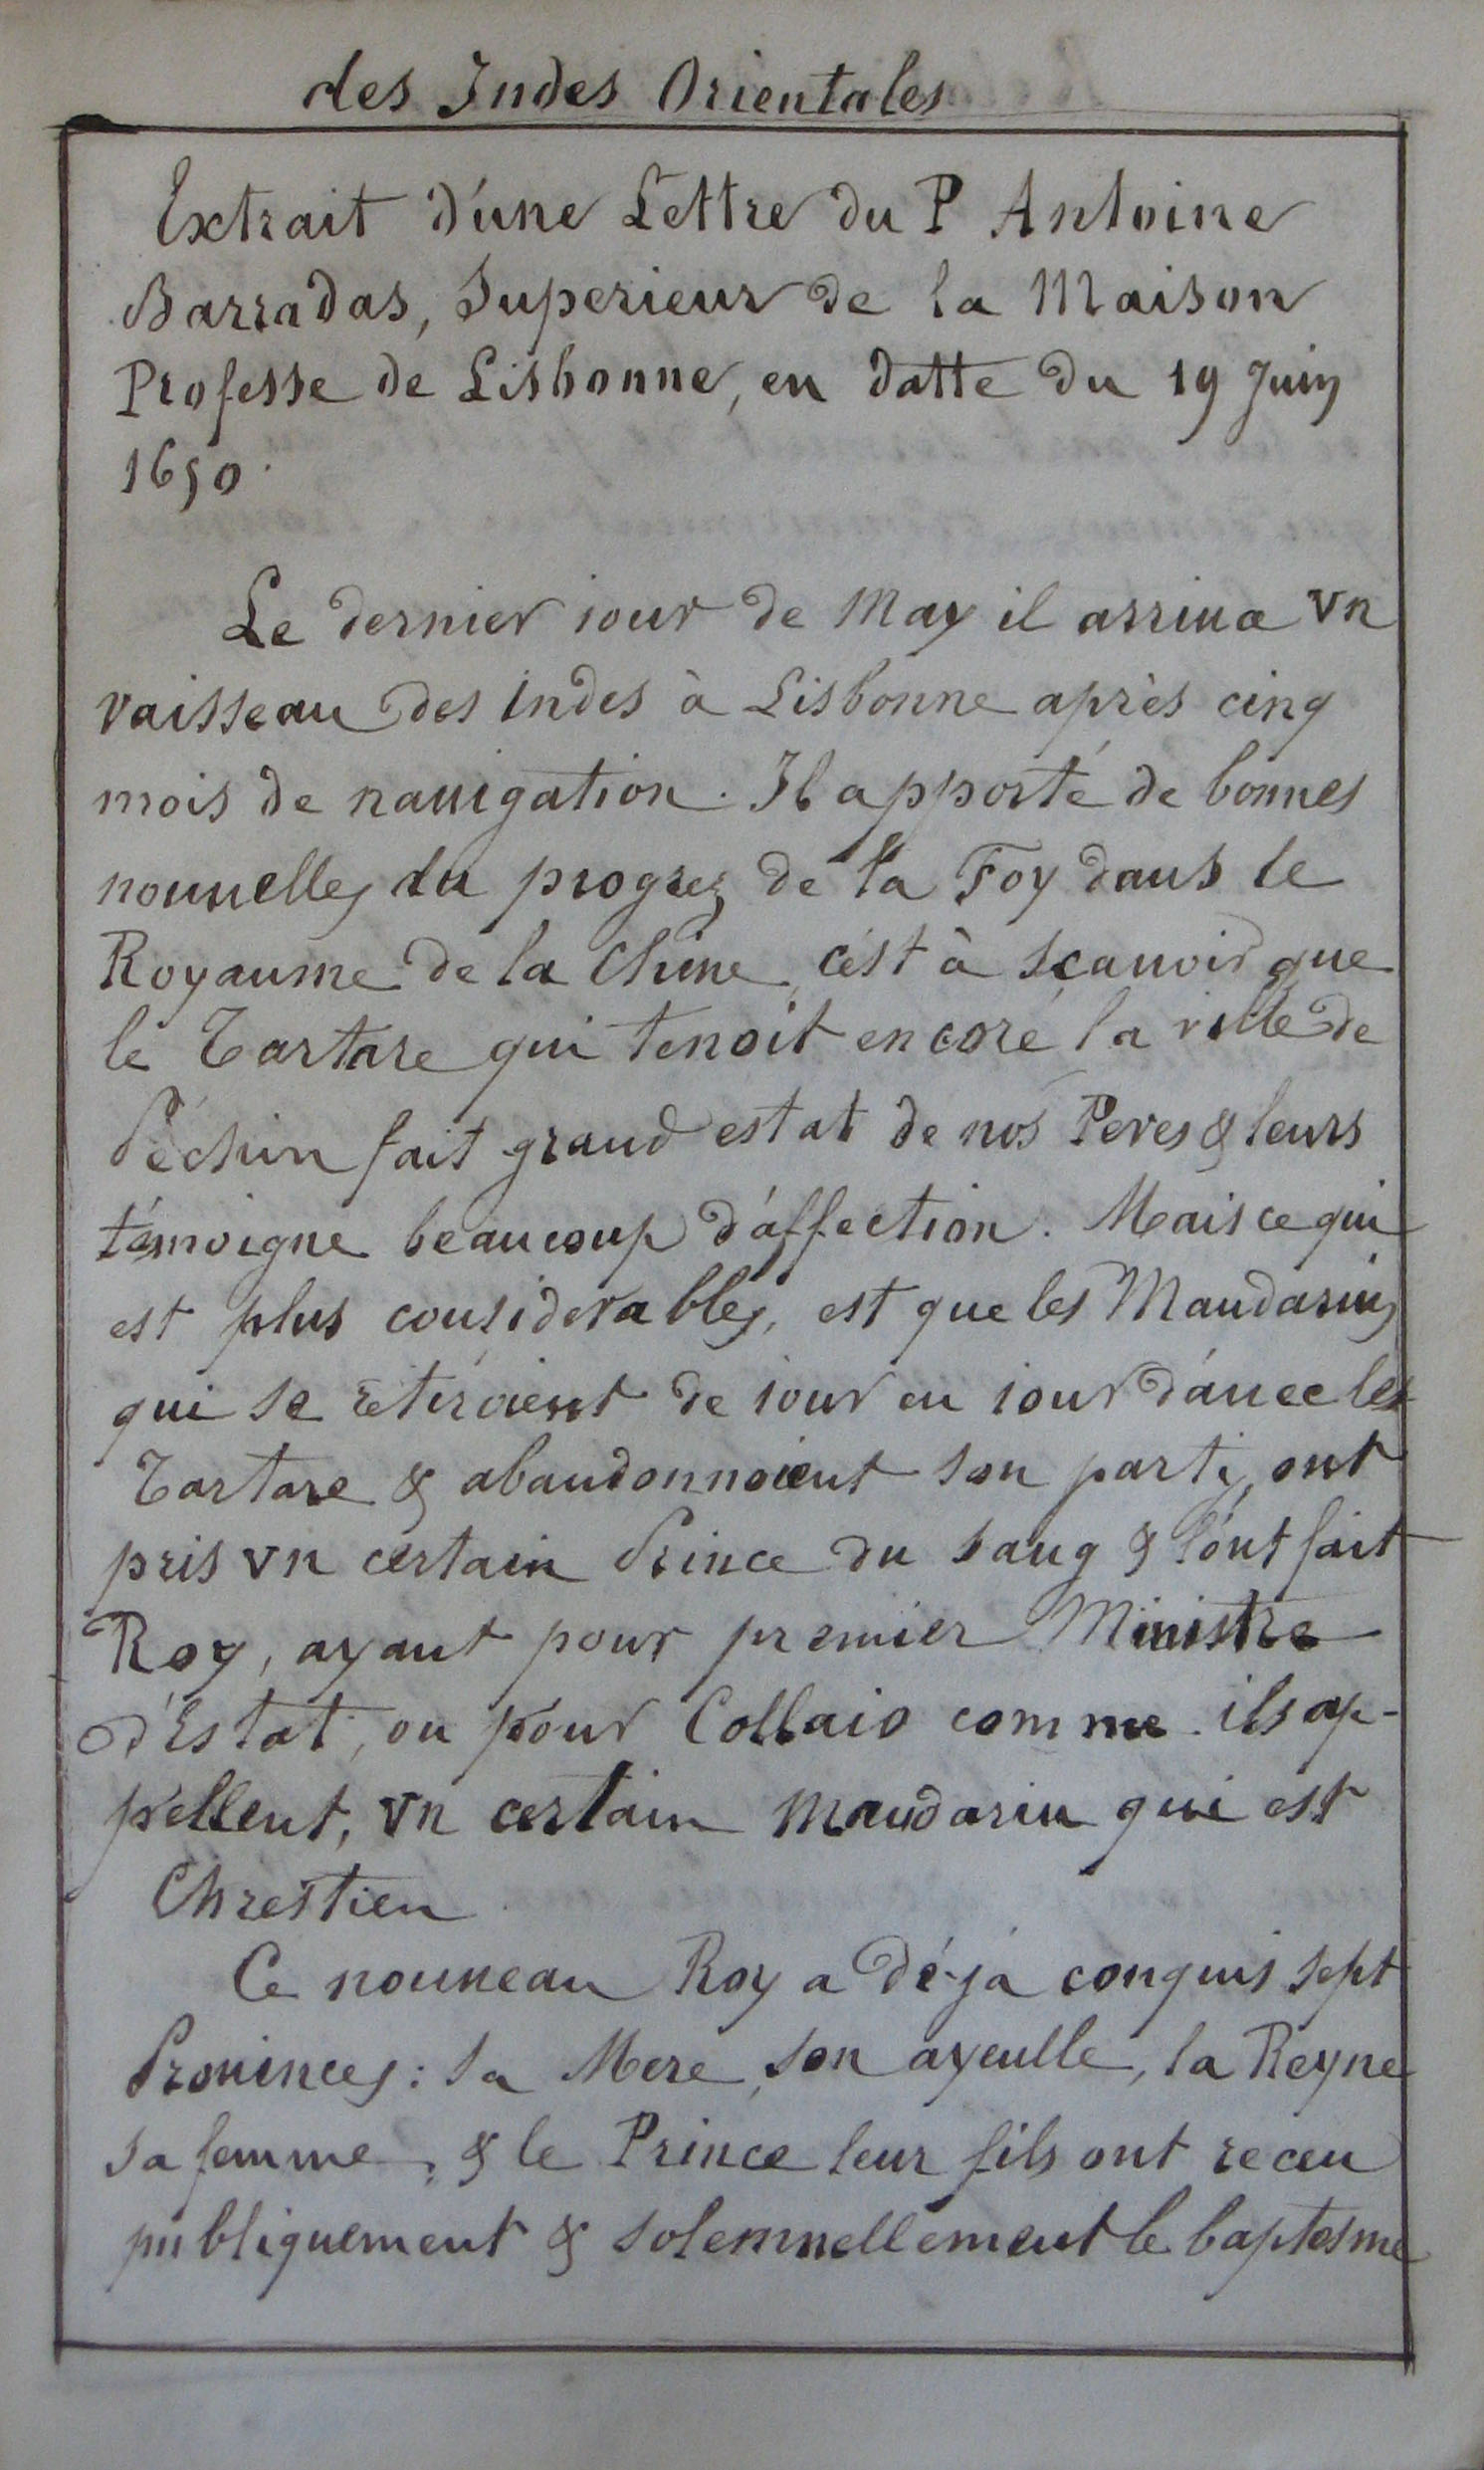 des Indes Orientales
Extrait d'une Lettre du P Antoine
Barradas, Superieur de la Maison
Professe de Lisbonne, en datte du 19 Juin
1650.
Le dernier iour de May il arriua vn
vaisseau des Indes à Lisbonne après cinq
mois de nauigation. Il apporté de bonnes
nouuelles du progrez de la Foy dans le
Royaume de la Chine, c'est à sçauoir que
le Tartare qui tenoit encore la ville de
Péchin fait grand estat de nos Peres & leurs
témoigne beaucoup d'affection. Mais ce qui
est plus considerables, est que les Mandarins
qui se retiroient de iour en iour d'auec les
Tartare & abandonnoient son parti, ont
pris vn certain Prince du sang & l'ont fait
Roy, ayant pour premier Ministre
d'Estat, ou pour Collaio comme ils ap-
pellent, vn certain Mandarin qui est
Chrestien
Ce nouueau Roy a dé-jà conquis sept
Prouinces: sa Mere, son ayeulle, la Reyne
sa femme, & le Prince leur fils ont receu
publiquement & solemnellement le baptesme